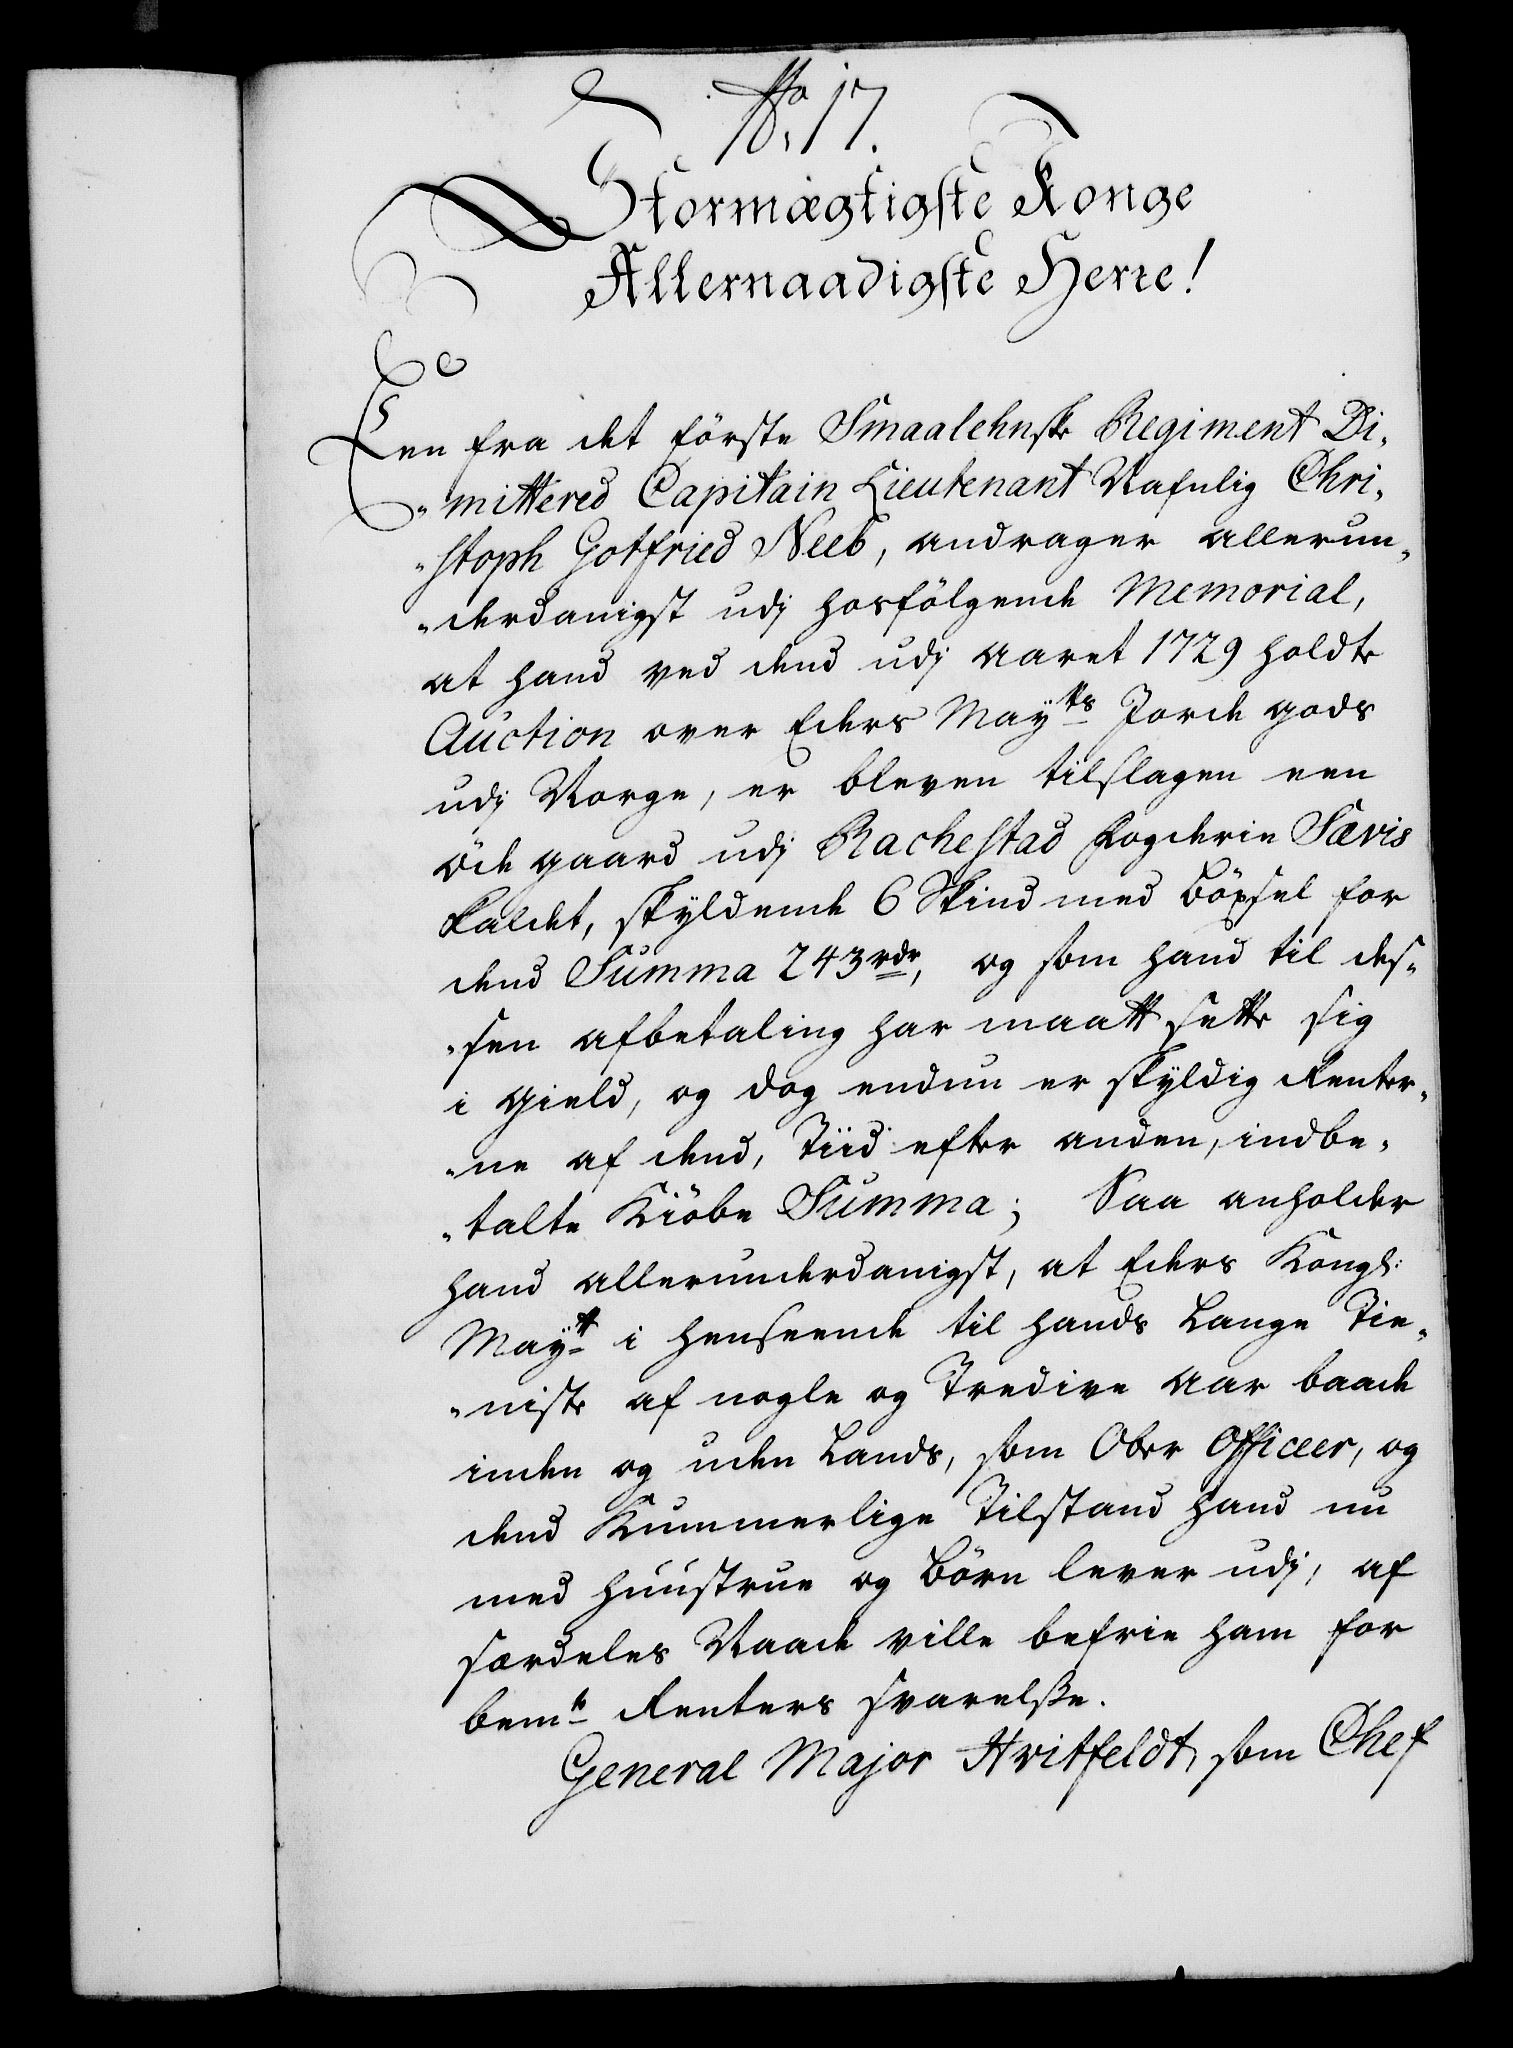 No. 17.
Stormægtigste Konge
Allernaadigste Herre!
Een fra det förste Smaalehnske Regiment Di-
-mittered Capitain Lieutenant Nafnlig Chri-
-stoph Gotfried Neeb, andrager allerun-
-derdanigst udj hosfölgende Memorial,
at hand ved dend udj Aaret 1729 holdte
Auction over Eders Maytts Jorde gods
udj Norge, er bleven tilslagen een
öde gaard udj Rachestad Fogderie Sævis
kaldt, skyldende 6 Skind med Böxsel for
dend Summa 243 rdr, og som hand til des-
-sen afbetaling har maatt sette sig
i gield, og dog endnu er skyldig Renter-
-ne af dend, Tiid efter anden, indbe-
-talte Kiöbe Summa; Saa anholder
hand allerunderdanigst, at Eders Kongl:
Maytt i henseende til hands Lange Tie-
-niste af nogle og Tredive Aar baade
inden og uden Lands, som Ober Officeer, og
dend Kummerlige Tilstand hand nu
med huustrue og Börn lever udj, af
særdeles Naade ville befrie ham for
bemte Renters svarelße.
General Major Hvitfeldt, som Chef